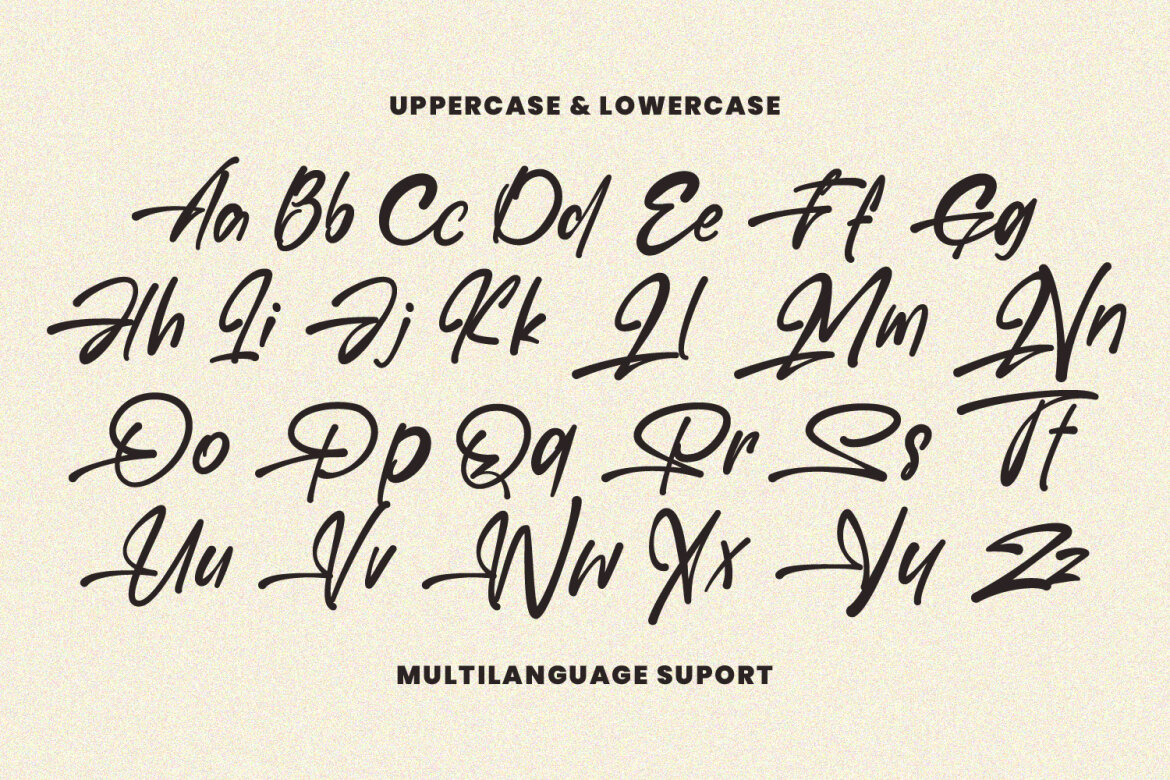 UPPERCASE & LOWERCASE
Aa Bb Cc Dd Ee Ff Gg
Hh Ii Jj Kk Ll Mm Nn
Oo Pp Qq Rr Ss Tt
Uu Vv Ww Xx Yy Zz
MULTILANGUAGE SUPORT